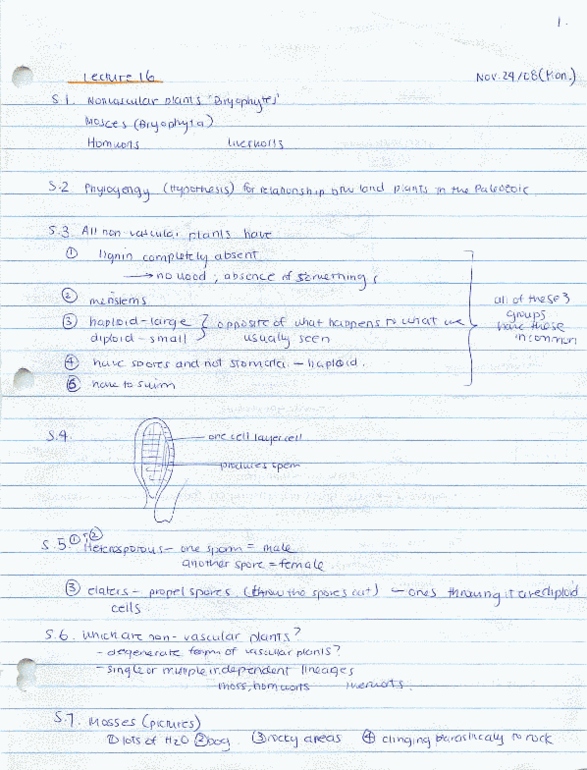 1.
Lecture 16 Nov. 24/08 (Mon.)
S1. Nonvascular plants 'Bryophytes'
Mosces (Bryophyta)
Hornworts liverworts
S.2 Phylogengy (Hypothesis) for relationship btw land plants in the Paleozoic
S.3 All non-vascular plants have
① lignin completely absent
→ no wood ; absence of
② meristems
③ haploid-large } opposite of what happens to what we
diploid - small usually seen
④ have spores and not stomata - haploid.
⑤ have to swim
all of these 3
groups
have these
in common
S.4.
one cell layer cell
produces sperm
S.5. ① ② Heterosporous - one sporm = male
another spore = female
③ elaters - propel spores (throw the spores out) - ones throwing it are diploid
cells
S.6. which are non-vascular plants?
- degenerate form of vascular plants?
- single or multiple independent lineages
moss, hornworts liverworts.
S.7. Mosses (pictures)
① lots of H2O ② bog ③ rocky areas ④ clinging parasitically to rock